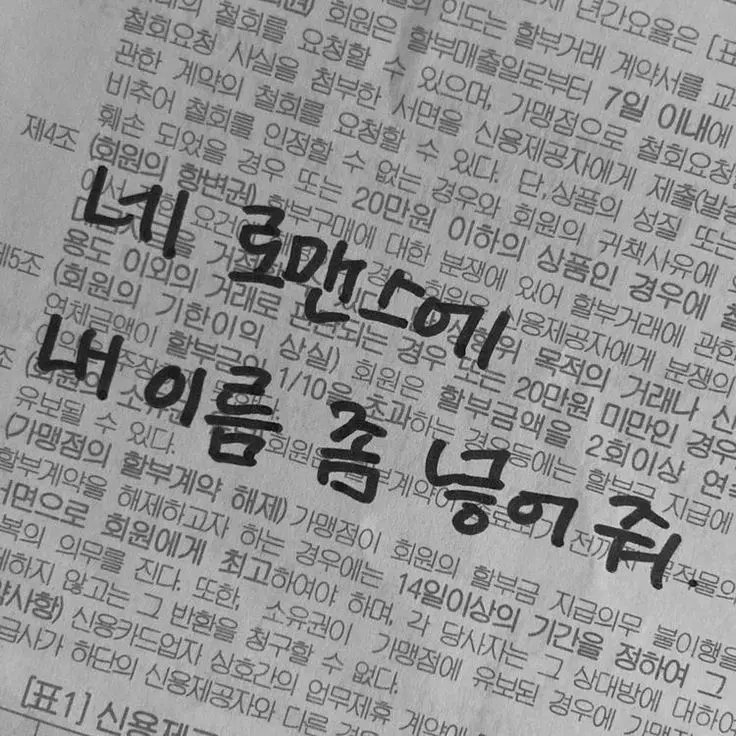 년간요율은 [표
인도는 할부거래 계약서를 교
회원은 할부매출일로부터 7일 이내에
철회를 요청할 수 있으며, 가맹점으로 철회요청
철회요청 사실을 첨부한 서면을 신용제공자에게 제출(발송
관한 계약의 철회를 요청할 수 있다. 단,상품의 성질 또는
비추어 철회를 인정할 수 없는 경우와 회원의 귀책사유에 의
훼손 되었을 경우 또는 20만원 이하의 상품인 경우에 철
제4조 (회원의 항변권) 할부구매에 대한 분쟁에 있어 할부거래에 관한
네 로맨스에
요건 경우 회원은 신용제공자에게 분쟁의
목적의 거래나 신
용도 이외의 거래로 판단되는 경우 또는 20만원 미만인 경우
제5조 (회원의 기한이익의 상실) 회원은 할부금액을 2회이상 연속
연체금액이 할부금의 1/10을 초과하는 경우등에는 할부금 지급에
내 이름 좀 넣어 줘.
조 (회원의 소유권 회원은 할부계약이 전까지 목적물의
유보될 수 있다.
(가맹점의 할부계약 해제) 가맹점이 회원의 할부금 지급의무 불이행을
할부계약을 해제하고자 하는 경우에는 14일이상의 기간을 정하여 그
서면으로 회원에게 최고하여야 하며, 각 당사자는 그 상대방에 대하여
복의 의무를 진다. 또한, 소유권이 가맹점에 유보된 경우에 가맹점
하지 않고는 그 반환을 청구할 수 없다.
약사항) 신용카드업자 상호간의 업무제휴 계약에
급사가 하단의 신용제공자와 다른 경우
[표1] 신용제공